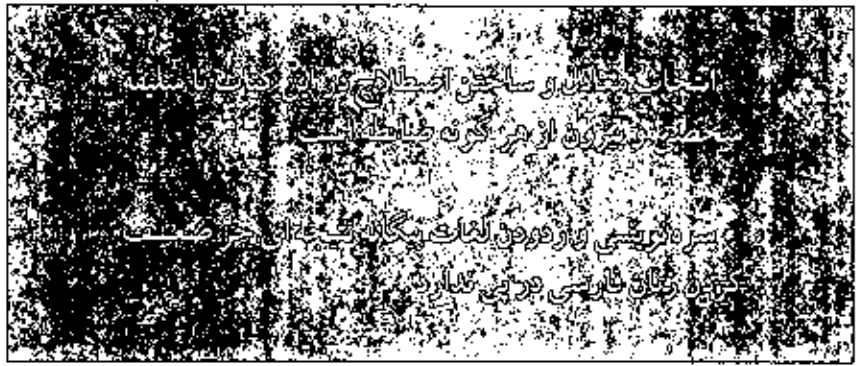 انتخاب معادل و ساختن اصطلاح در این کتاب با سلیقه
شخصی و بیرون از هر گونه ضابطه است
سره‌نویسی و زدودن لغات بیگانه نتیجه‌ای جز ضعیف
کردن زبان فارسی در پی ندارد